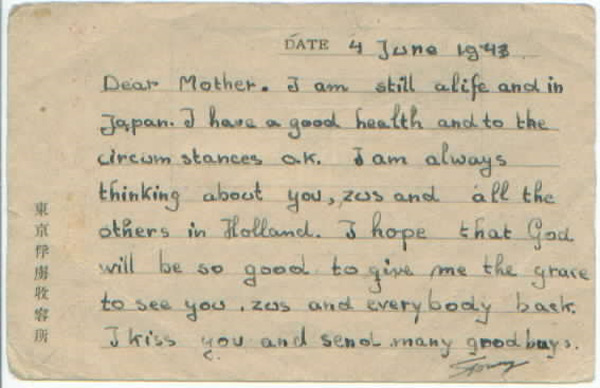 DATE 4 June 1943
Dear Mother. I am still alife and in
Japan. I have a good health and to the
circumstances o.k. I am always
thinking about you, zus and all the
others in Holland. I hope that God
will be so good to give me the grace
to see you, zus and everybody back.
I kiss you and send many goodbuys.
東京俘虜收容所